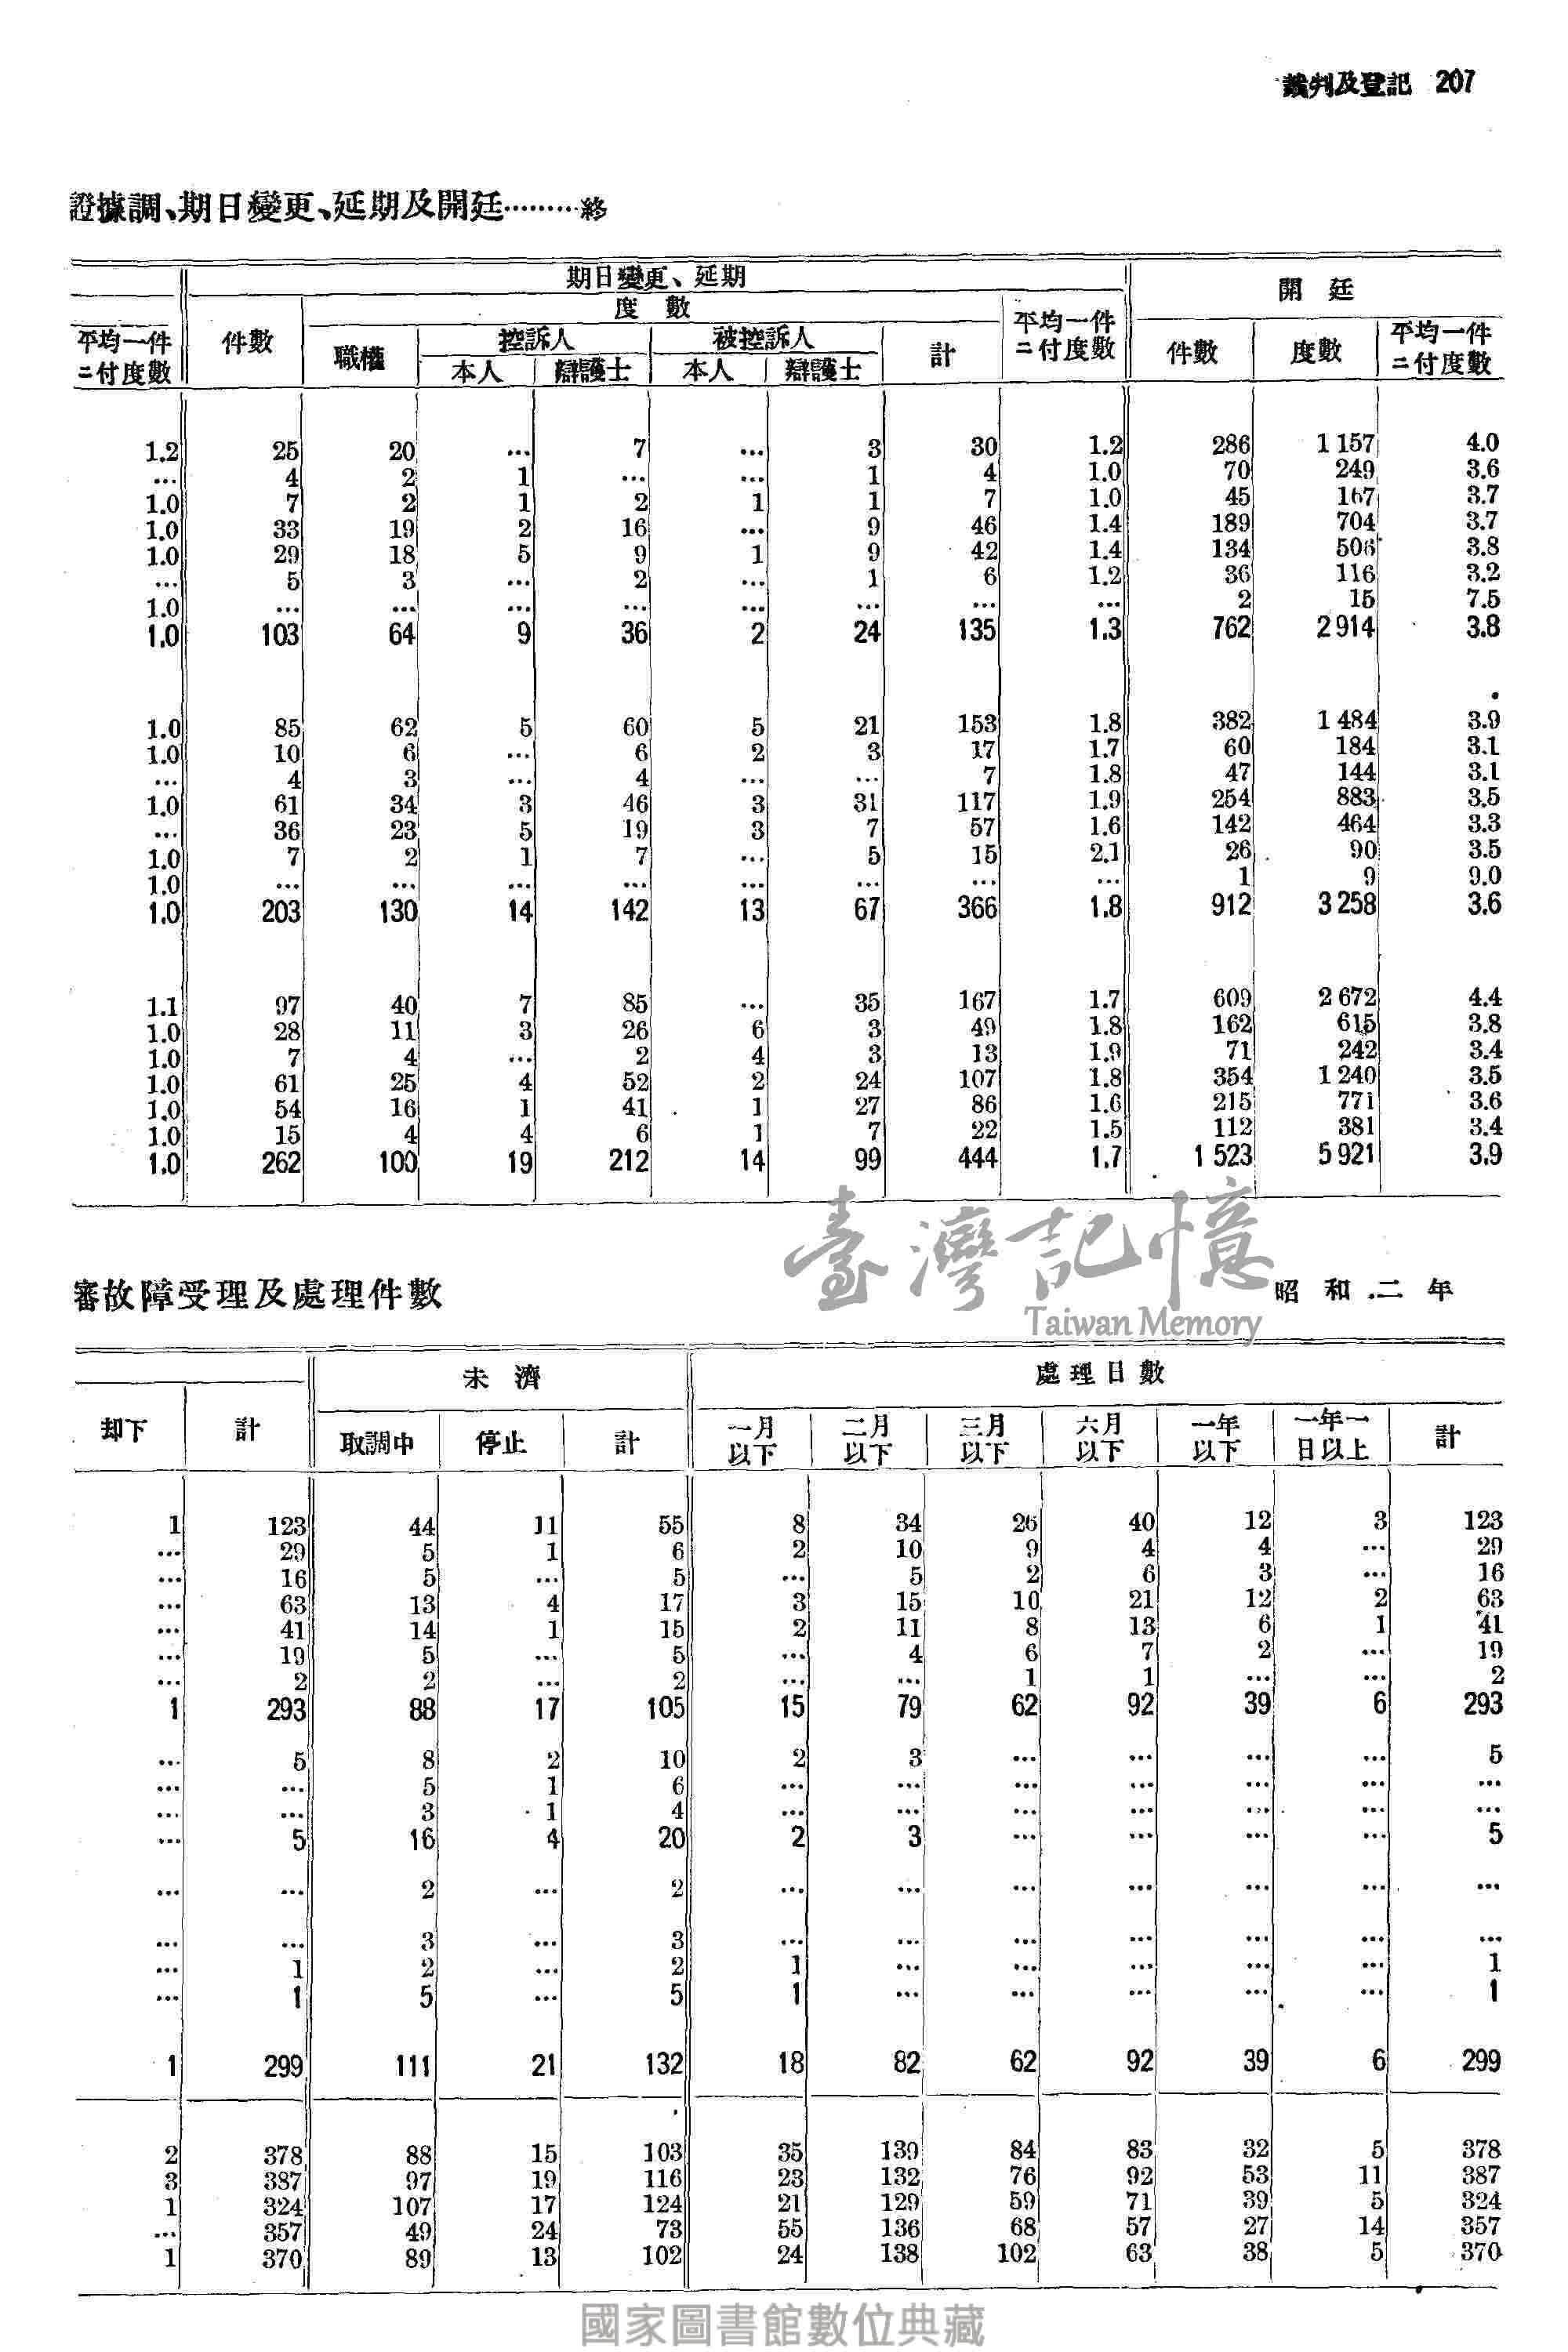 裁判及登記 207
證據調、期日變更、延期及開廷………終
期日變更、延期 開廷
度數
平均一件ニ付度數 件數 職權 控訴人 被控訴人 計 平均一件ニ付度數 件數 度數 平均一件ニ付度數
本人 辯護士 本人 辯護士
1.2 25 20 … 7 … 3 30 1.2 286 1 157 4.0
… 4 2 1 … … 1 4 1.0 70 249 3.6
1.0 7 2 1 2 1 1 7 1.0 45 167 3.7
1.0 33 19 2 16 … 9 46 1.4 189 704 3.7
1.0 29 18 5 9 1 9 42 1.4 134 506 3.8
… 5 3 … 2 … 1 6 1.2 36 116 3.2
1.0 … … … … … … … … 2 15 7.5
1.0 103 64 9 36 2 24 135 1.3 762 2 914 3.8
1.0 85 62 5 60 5 21 153 1.8 382 1 484 3.9
1.0 10 6 … 6 2 3 17 1.7 60 184 3.1
… 4 3 … 4 … … 7 1.8 47 144 3.1
1.0 61 34 3 46 3 31 117 1.9 254 883 3.5
… 36 23 5 19 3 7 57 1.6 142 464 3.3
1.0 7 2 1 7 … 5 15 2.1 26 90 3.5
1.0 … … … … … … … … 1 9 9.0
1.0 203 130 14 142 13 67 366 1.8 912 3 258 3.6
1.1 97 40 7 85 … 35 167 1.7 609 2 672 4.4
1.0 28 11 3 26 6 3 49 1.8 162 615 3.8
1.0 7 4 … 2 4 3 13 1.9 71 242 3.4
1.0 61 25 4 52 2 24 107 1.8 354 1 240 3.5
1.0 54 16 1 41 1 27 86 1.6 215 771 3.6
1.0 15 4 4 6 1 7 22 1.5 112 381 3.4
1.0 262 100 19 212 14 99 444 1.7 1 523 5 921 3.9
臺灣記憶
Taiwan Memory
審故障受理及處理件數 昭和二年
未濟 處理日數
却下 計 取調中 停止 計 一月以下 二月以下 三月以下 六月以下 一年以下 一年一日以上 計
1 123 44 11 55 8 34 26 40 12 3 123
… 29 5 1 6 2 10 9 4 4 … 29
… 16 5 … 5 … 5 2 6 3 … 16
… 63 13 4 17 3 15 10 21 12 2 63
… 41 14 1 15 2 11 8 13 6 1 41
… 19 5 … 5 … 4 6 7 2 … 19
… 2 2 … 2 … … 1 1 … … 2
1 293 88 17 105 15 79 62 92 39 6 293
… 5 8 2 10 2 3 … … … … 5
… … 5 1 6 … … … … … … …
… … 3 1 4 … … … … … … …
… 5 16 4 20 2 3 … … … … 5
… … 2 … 2 … … … … … … …
… … 3 … 3 … … … … … … …
… 1 2 … 2 1 … … … … … 1
… 1 5 … 5 1 … … … … … 1
1 299 111 21 132 18 82 62 92 39 6 299
2 378 88 15 103 35 139 84 83 32 5 378
3 387 97 19 116 23 132 76 92 53 11 387
1 324 107 17 124 21 129 59 71 39 5 324
… 357 49 24 73 55 136 68 57 27 14 357
1 370 89 13 102 24 138 102 63 38 5 370
國家圖書館數位典藏